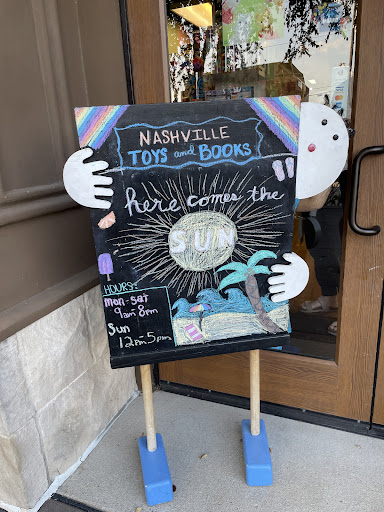 NASHVILLE
TOYS and BOOKS
here comes the
SUN
HOURS:
mon-sat
9am-8pm
Sun
12pm-5pm